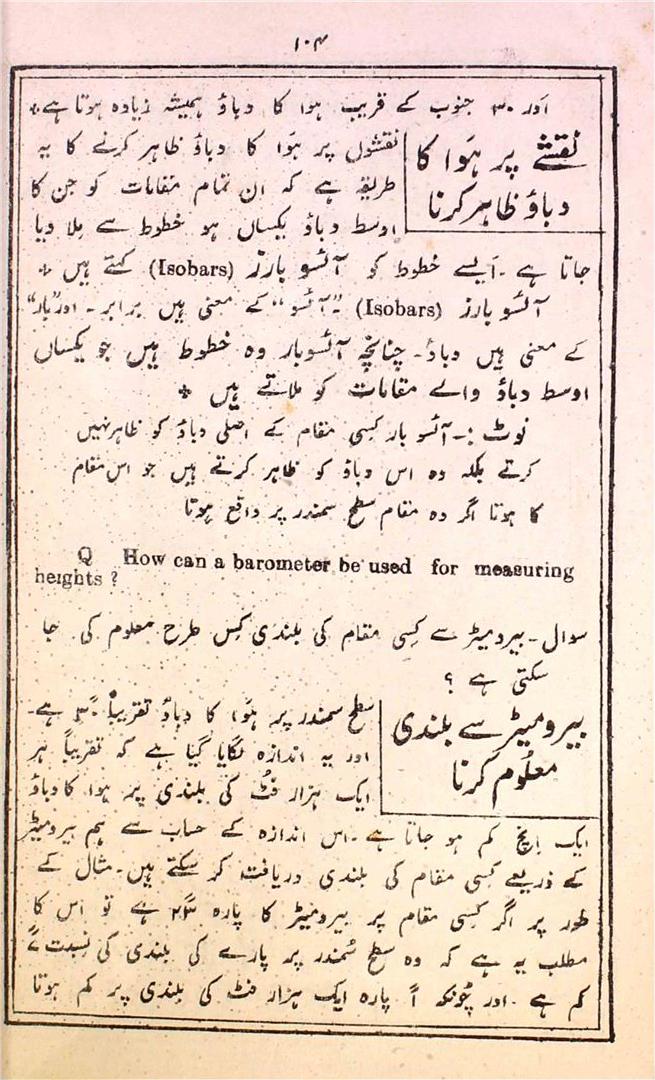 ۱۰۴
اور ۳۰ جنوب کے قریب ہوا کا دباؤ ہمیشہ زیادہ ہوتا ہے *
نقشے پر ہَوا کا
دباؤ ظاہر کرنا
نقشوں پر ہَوا کا دباؤ ظاہر کرنے کا یہ
طریقہ ہے کہ ان تمام مقامات کو جن کا
اوسط دباؤ یکساں ہو خطوط سے مِلا دیا
جاتا ہے ۔ ایسے خطوط کو آئسو بارز (Isobars) کہتے ہیں *
آئسو بارز (Isobars) ۔ "آئسو" کے معنی ہیں برابر ۔ اور "بار"
کے معنی ہیں دباؤ ۔ چنانچہ آئسوبار وہ خطوط ہیں جو یکساں
اوسط دباؤ والے مقامات کو ملاتے ہیں *
نوٹ :۔ آئسو بار کسِی مقام کے اصلی دباؤ کو ظاہر نہیں
کرتے بلکہ وہ اس دباؤ کو ظاہر کرتے ہیں جو اس مقام
کا ہوتا اگر وہ مقام سطح سمندر پر واقع ہوتا
Q How can a barometer be used for measuring
heights ?
سوال ۔ بیرومیٹر سے کسِی مقام کی بلندی کِس طرح معلوم کی جا
سکتی ہے ؟
بیرومیٹر سے بلندی
معلُوم کرنا
سطح سمندر پر ہَوا کا دباؤ تقریباً ۳۰ً ہے ۔
اور یہ اندازہ لگایا گیا ہے کہ تقریباً ہر
ایک ہزار فُٹ کی بلندی پر ہوا کا دباؤ
ایک اِنچ کم ہو جاتا ہے ۔ اس اندازہ کے حساب سے ہم بیرومیٹر
کے ذریعے کسِی مقام کی بلندی دریافت کر سکتے ہیں ۔ مثال کے
طور پر اگر کسِی مقام پر بیرومیٹر کا پارہ ۲۳ً ہے تو اس کا
مطلب یہ ہے کہ وہ سطح سُمندر پر پارے کی بلندی کی نسبت ۷ً
کم ہے ۔ اور چُونکہ ۱ً پارہ ایک ہزار فٹ کی بلندی پر کم ہوتا